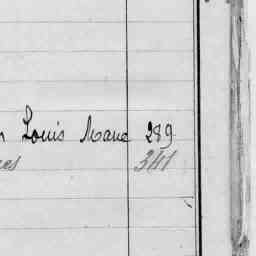 Louis Marie 289
es 341